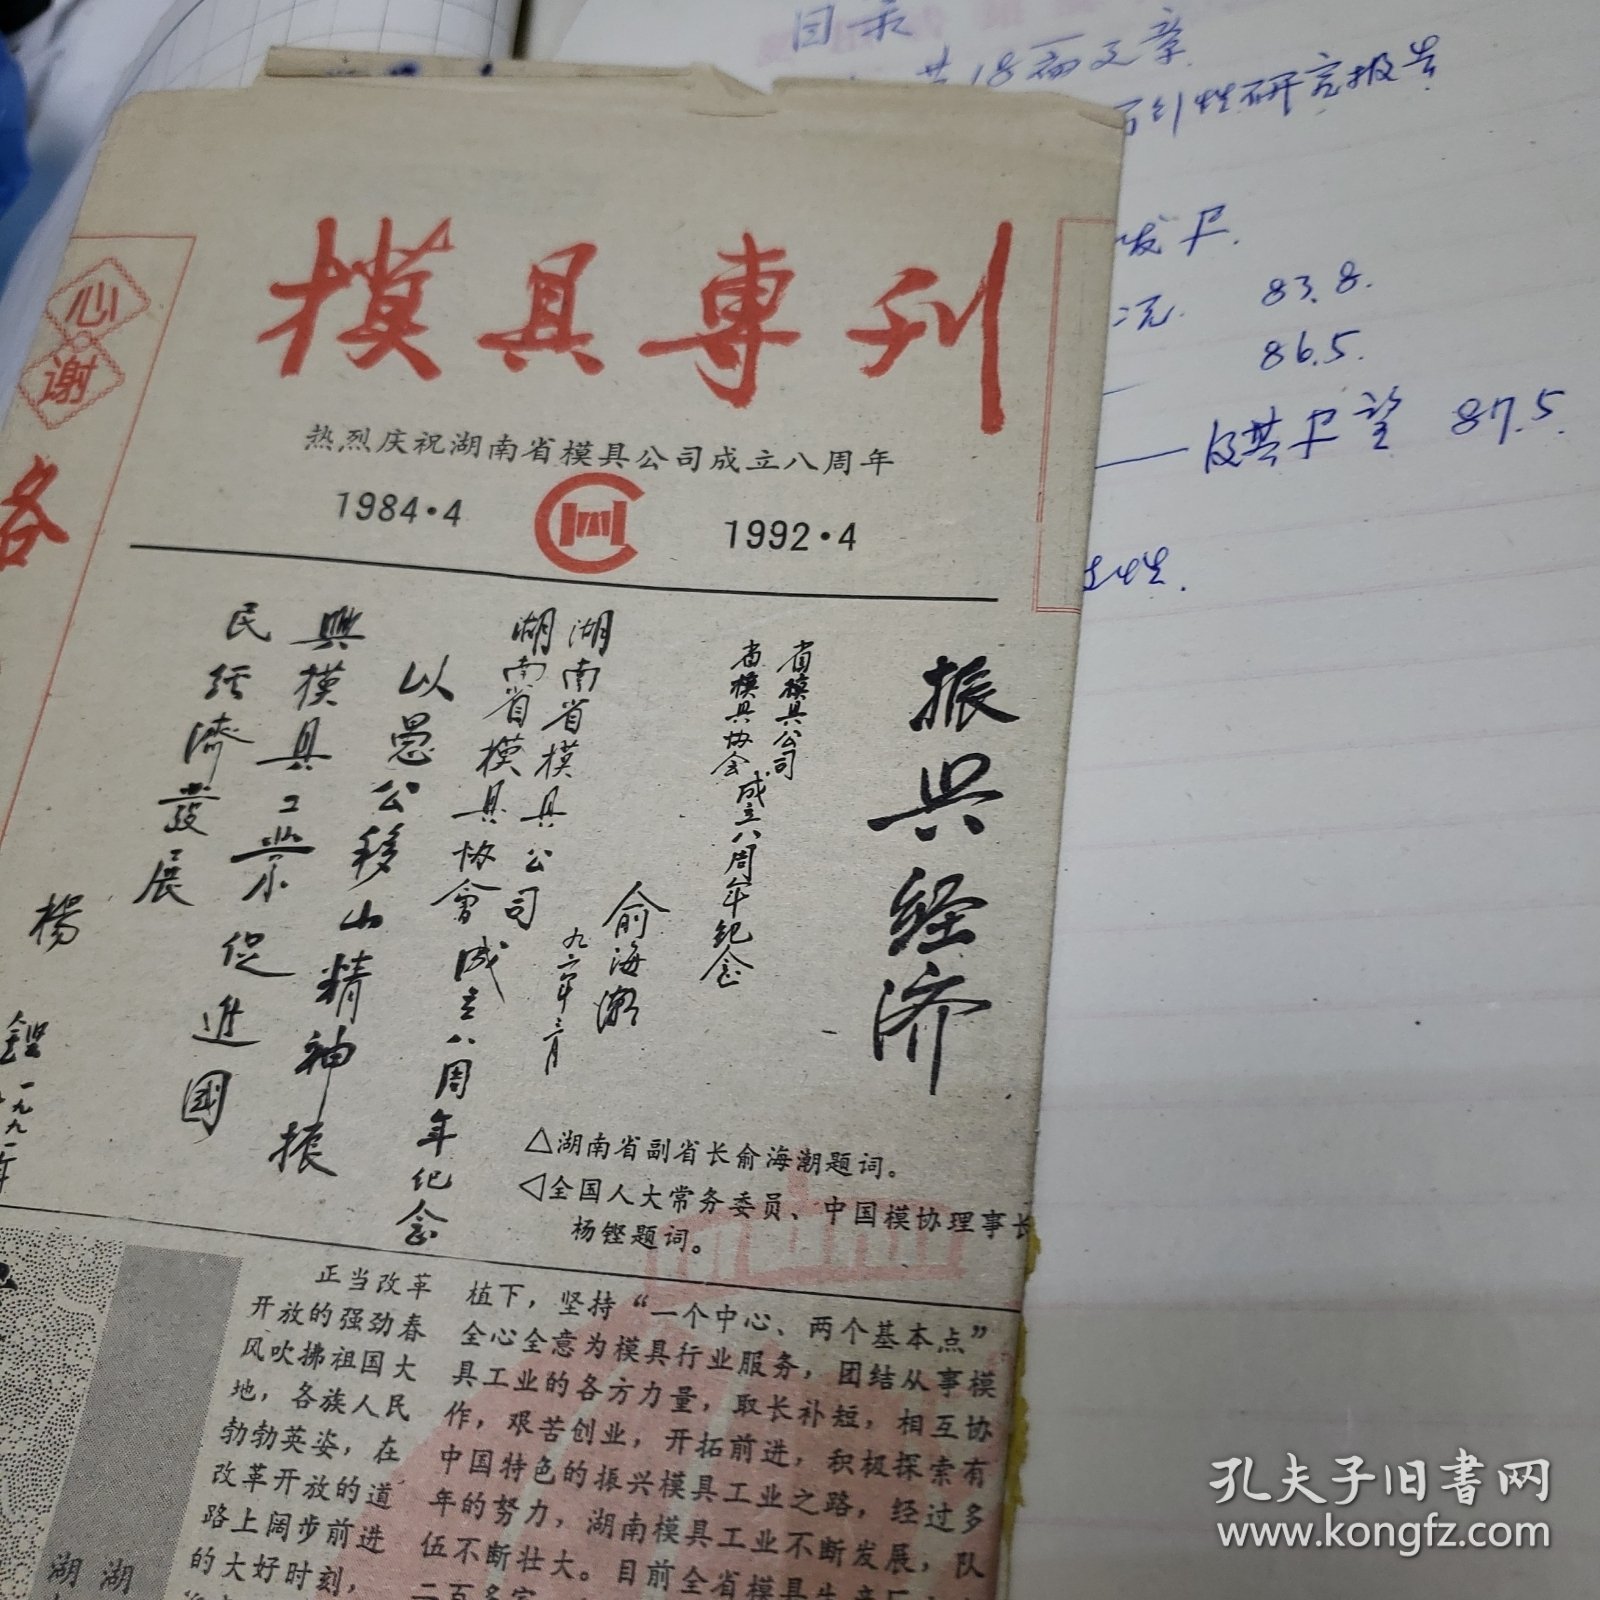 目录
共18篇文章
性研究报告
83.8.
86.5.
及其展望 87.5.
性.
心
谢
各
模具專刊
热烈庆祝湖南省模具公司成立八周年
1984·4
1992·4
振兴经济
省模具公司
省模具协会成立八周年纪念
俞海潮
九二年三月
湖南省模具公司
湖南省模具协會成立八周年纪念
以愚公移山精神振
興模具工業促进國
民经濟發展
楊
鏗
一九九一年
△湖南省副省长俞海潮题词。
◁全国人大常务委员、中国模协理事长
杨铿题词。
正当改革
开放的强劲春
风吹拂祖国大
地，各族人民
勃勃英姿，在
改革开放的道
路上阔步前进
的大好时刻，
植下，坚持“一个中心、两个基本点”
全心全意为模具行业服务，团结从事模
具工业的各方力量，取长补短，相互协
作，艰苦创业，开拓前进，积极探索有
中国特色的振兴模具工业之路，经过多
年的努力，湖南模具工业不断发展，队
伍不断壮大。目前全省模具生产厂
二百多家
湖 湖
孔夫子旧书网
www.kongfz.com